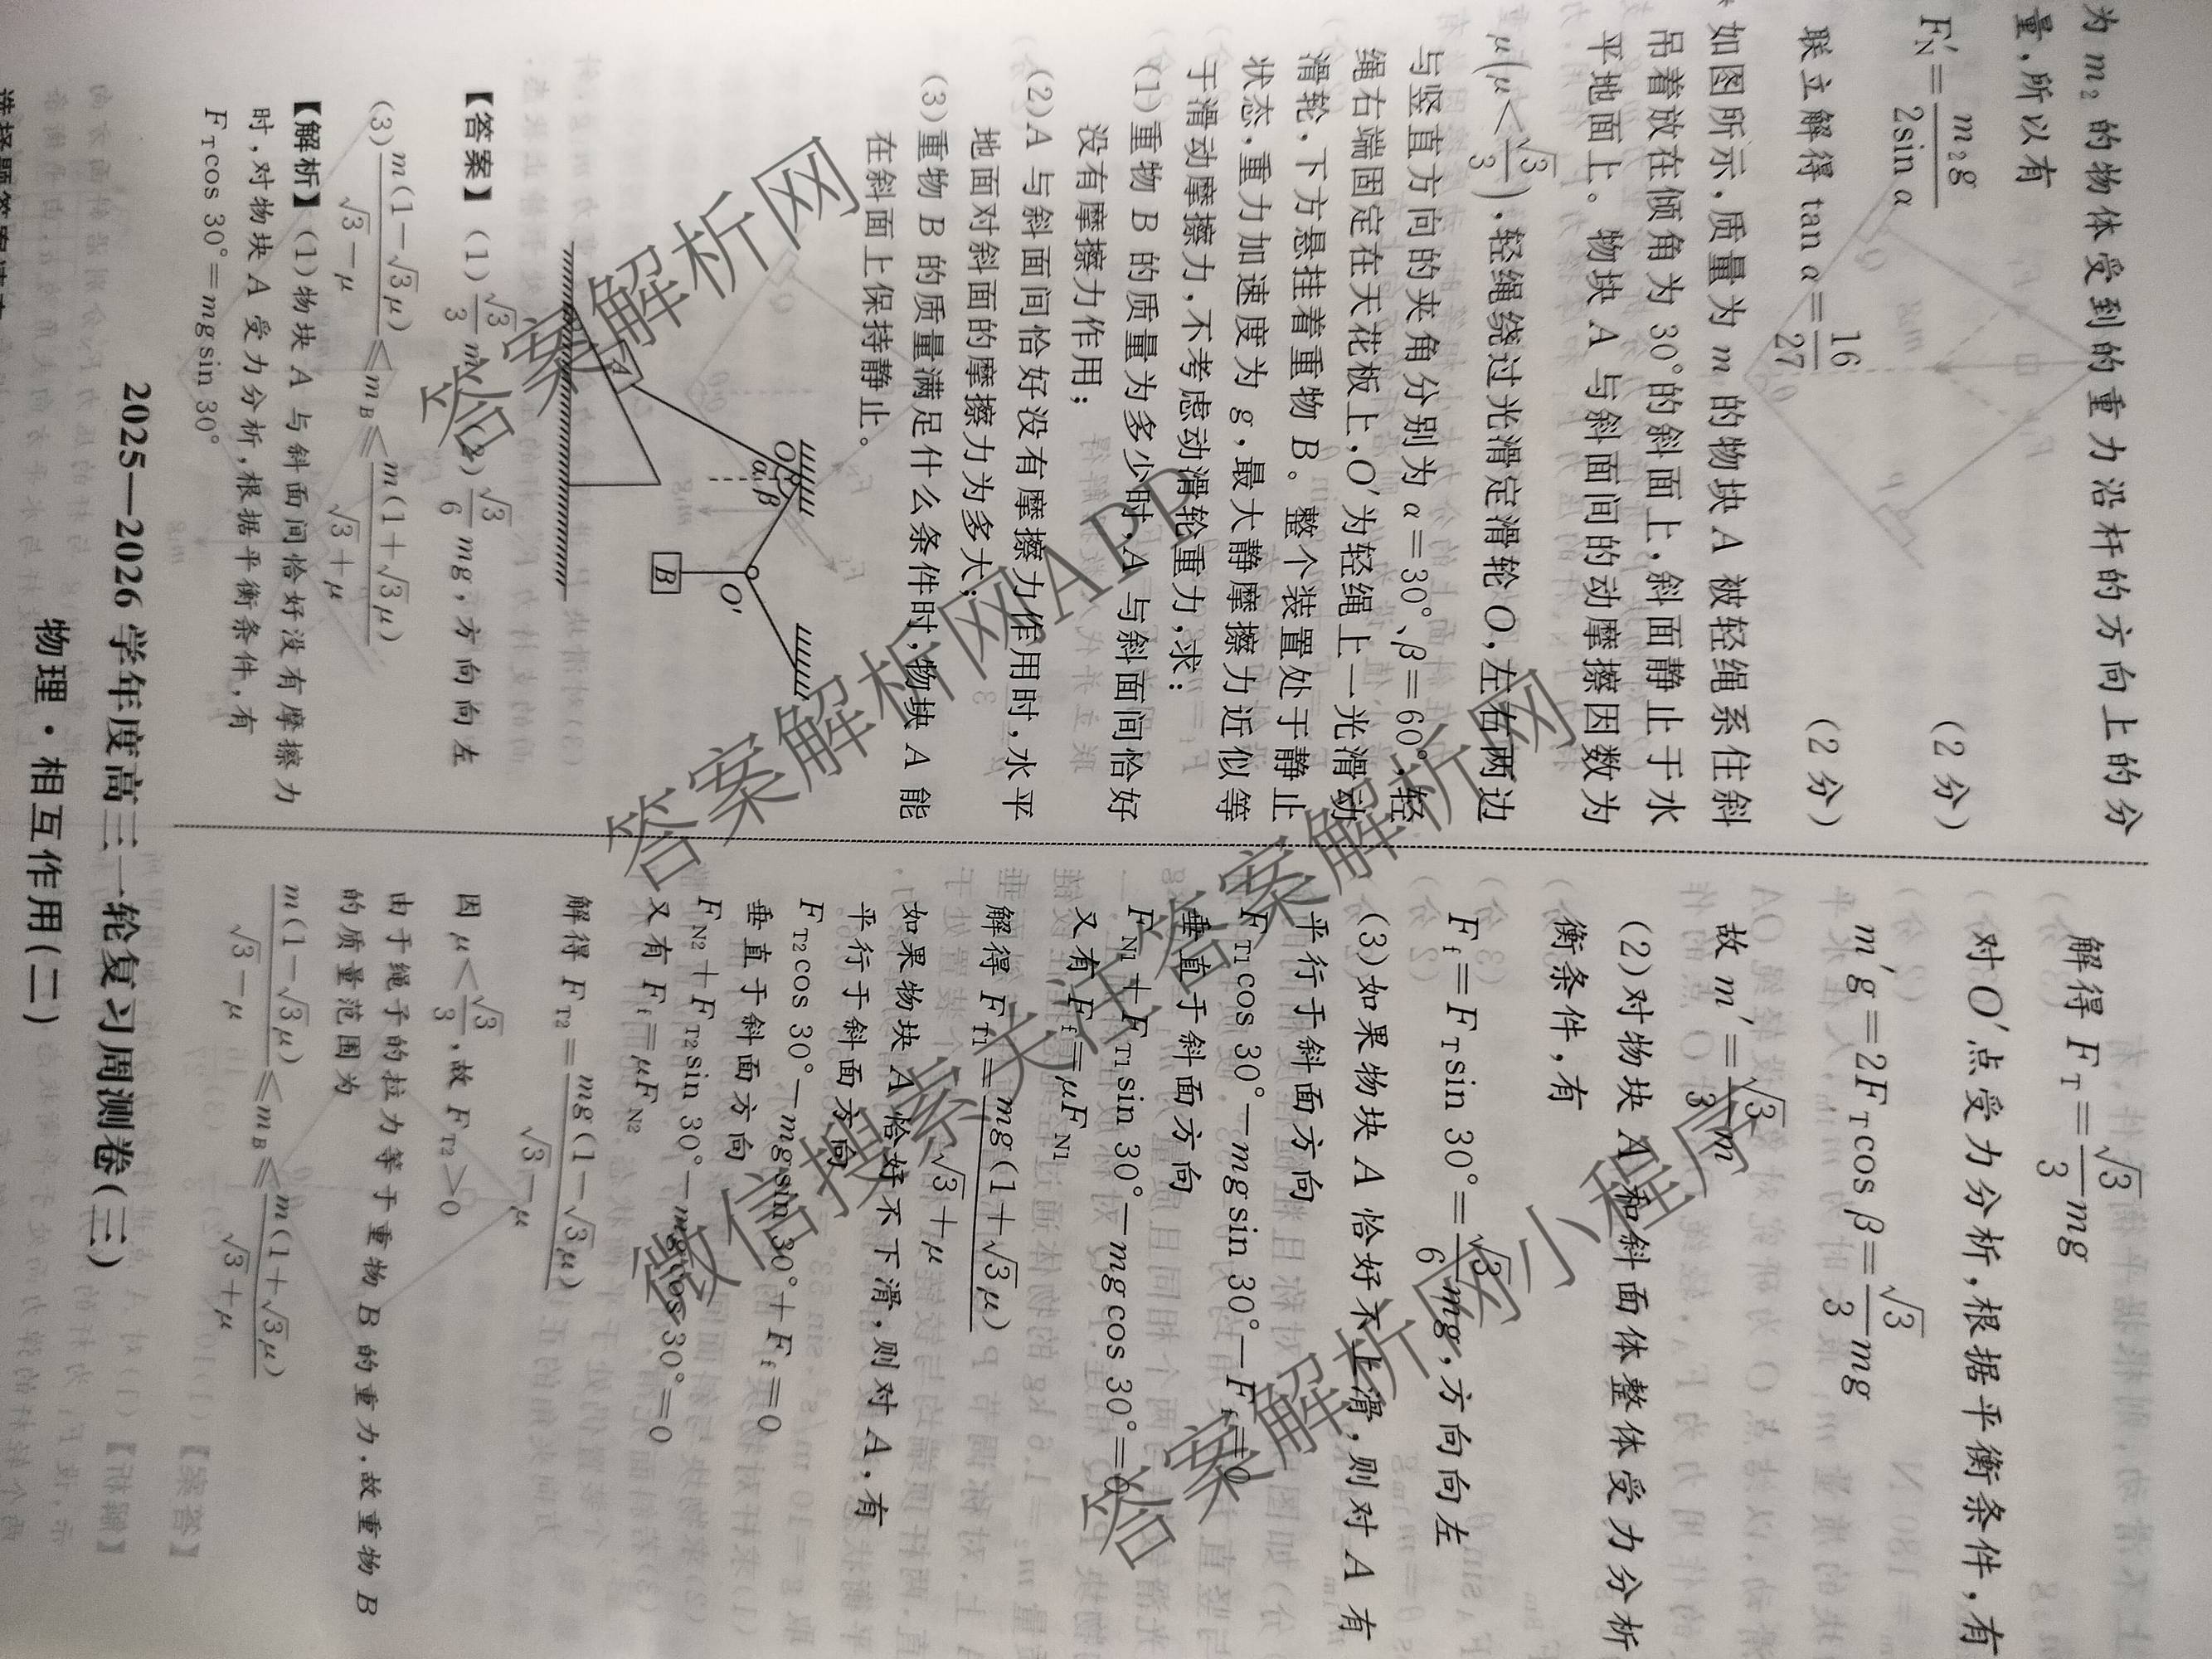 为 m₂ 的物体受到的重力沿杆的方向上的分
量,所以有
F′_N=m₂g/(2sin α) (2分)
联立解得 tan α=16/27 (2分)
如图所示,质量为 m 的物块 A 被轻绳系住斜
吊着放在倾角为 30°的斜面上,斜面静止于水
平地面上。物块 A 与斜面间的动摩擦因数为
μ(μ<√3/3),轻绳绕过光滑定滑轮 O,左右两边
与竖直方向的夹角分别为 α=30°、β=60°,轻
绳右端固定在天花板上,O′为轻绳上一光滑动
滑轮,下方悬挂着重物 B。整个装置处于静止
状态,重力加速度为 g,最大静摩擦力近似等
于滑动摩擦力,不考虑动滑轮重力,求:
(1)重物 B 的质量为多少时,A 与斜面间恰好
没有摩擦力作用;
(2)A 与斜面间恰好没有摩擦力作用时,水平
地面对斜面的摩擦力为多大;
(3)重物 B 的质量满足什么条件时,物块 A 能
在斜面上保持静止。
O
α β
A
O′
B
【答案】 (1)√3/3 m (2)√3/6 mg,方向向左
(3)m(1−√3μ)/(√3−μ)≤m_B≤m(1+√3μ)/(√3+μ)
【解析】 (1)物块 A 与斜面间恰好没有摩擦力
时,对物块 A 受力分析,根据平衡条件,有
F_T cos 30°=mgsin 30°
解得 F_T=√3/3 mg
对 O′点受力分析,根据平衡条件,有
m′g=2F_T cos β=√3/3 mg
故 m′=√3/3 m
(2)对物块 A 和斜面体整体受力分析
衡条件,有
F_f=F_T sin 30°=√3/6 mg,方向向左
(3)如果物块 A 恰好不上滑,则对 A 有
平行于斜面方向
F_T1 cos 30°−mgsin 30°−F_f=0
垂直于斜面方向
F_N1+F_T1 sin 30°−mgcos 30°=0
又有 F_f=μF_N1
解得 F_T1=mg(1+√3μ)/(√3+μ)
如果物块 A 恰好不下滑,则对 A,有
平行于斜面方向
F_T2 cos 30°−mgsin 30°+F_f=0
垂直于斜面方向
F_N2+F_T2 sin 30°−mgcos 30°=0
又有 F_f=μF_N2
解得 F_T2=mg(1−√3μ)/(√3−μ)
因 μ<√3/3,故 F_T2>0
由于绳子的拉力等于重物 B 的重力,故重物 B
的质量范围为
m(1−√3μ)/(√3−μ)≤m_B≤m(1+√3μ)/(√3+μ)
2025—2026 学年度高三一轮复习周测卷(三)
物理·相互作用(二)
答案解析网
答案解析网APP
答案解析网
微信搜索关注答案解析网
答案解析网小程序